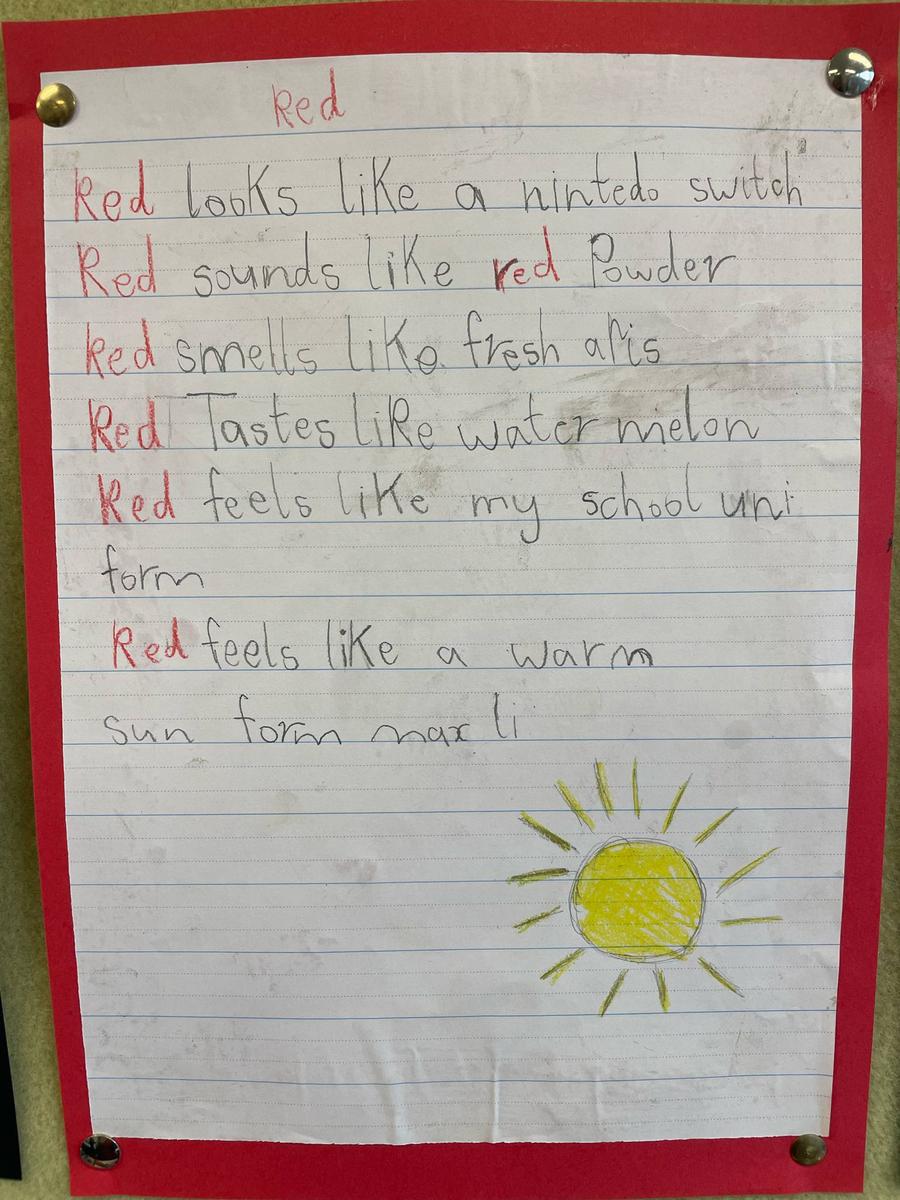 Red
Red looks like a nintedo switch
Red sounds like red Powder
Red smells like fresh aPis
Red Tastes like water melon
Red feels like my school uni
form
Red feels like a warm
sun form max li